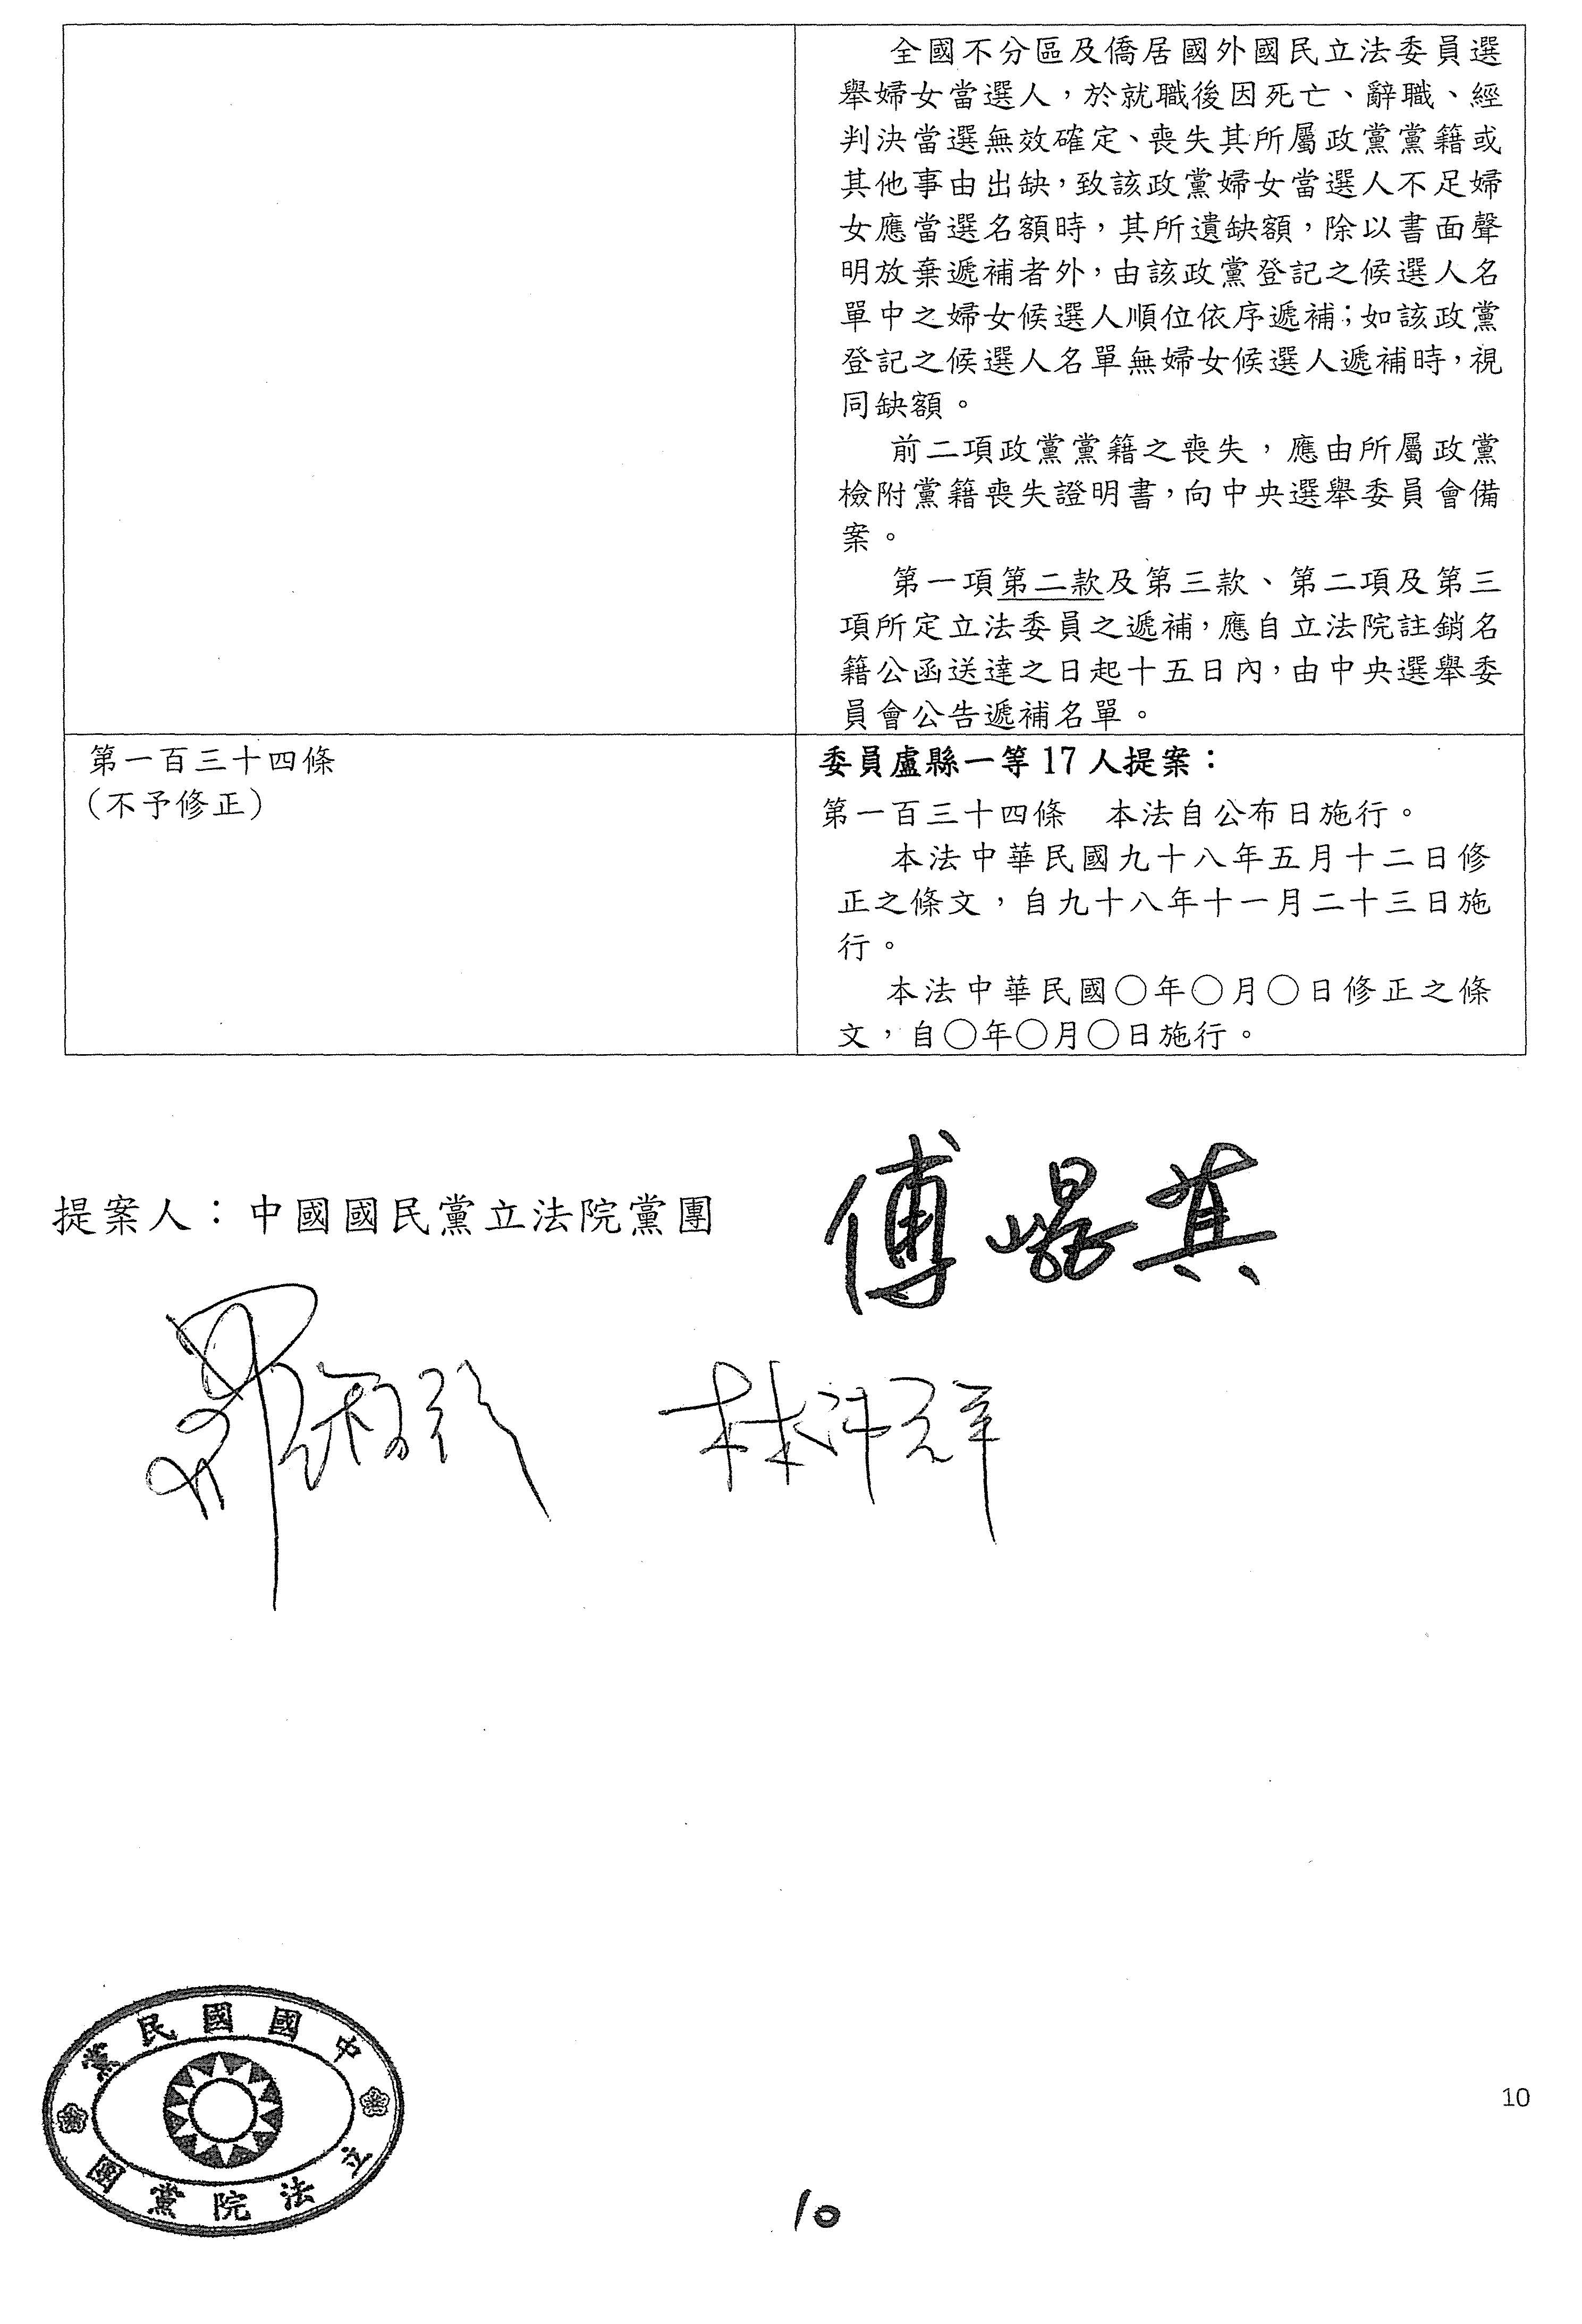 全國不分區及僑居國外國民立法委員選
舉婦女當選人，於就職後因死亡、辭職、經
判決當選無效確定、喪失其所屬政黨黨籍或
其他事由出缺，致該政黨婦女當選人不足婦
女應當選名額時，其所遺缺額，除以書面聲
明放棄遞補者外，由該政黨登記之候選人名
單中之婦女候選人順位依序遞補；如該政黨
登記之候選人名單無婦女候選人遞補時，視
同缺額。
前二項政黨黨籍之喪失，應由所屬政黨
檢附黨籍喪失證明書，向中央選舉委員會備
案。
第一項第二款及第三款、第二項及第三
項所定立法委員之遞補，應自立法院註銷名
籍公函送達之日起十五日內，由中央選舉委
員會公告遞補名單。
第一百三十四條
（不予修正）
委員盧縣一等17人提案：
第一百三十四條　本法自公布日施行。
本法中華民國九十八年五月十二日修
正之條文，自九十八年十一月二十三日施
行。
本法中華民國○年○月○日修正之條
文，自○年○月○日施行。
提案人：中國國民黨立法院黨團
傅崐萁
羅智強
林沛祥
中國國民黨
立法院黨團
10
10